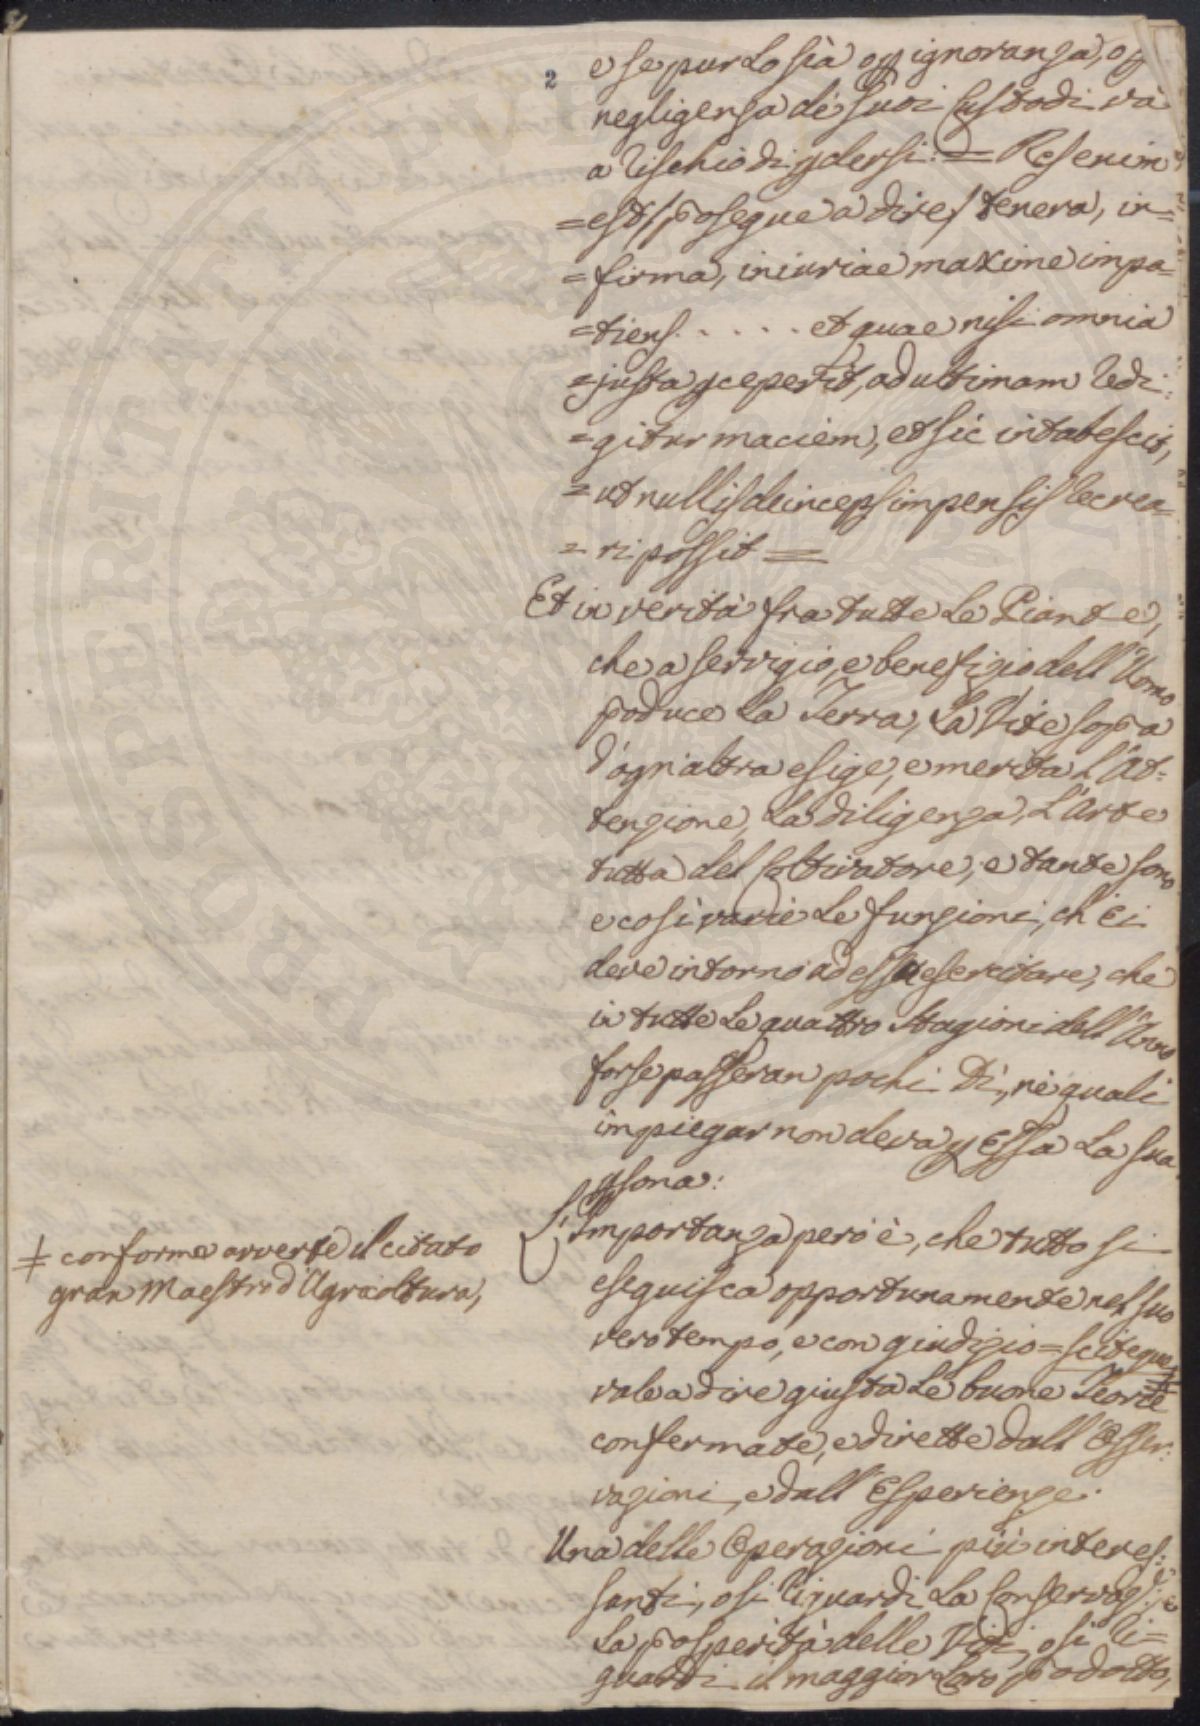 2
e se pur lo sià o p ignoranza, o p
negligenza de' suoi Custodi và
a rischio di pdersi: = Res enim
= est / prosegue a dire / tenera, in=
= firma, iniuriae maxime impa=
= tiens. . . . . et quae nisi omnia
= justa pceperit, ad ultimam redi:
= gitur maciem, et sic intabescit,
= ut nullis deinceps impensis recrea=
= ri possit =
Et in verità fra tutte le Piante,
che a servigio, e benefizio dell'Uomo
produce la Terra, la Vite sopra
d'ogn'altra esige, e merita l'At=
tenzione, la diligenza, l'Arte
tutta del Coltivatore; e tante sono
e così varie le funzioni, ch'Ei
deve intorno ad essa esercitare, che
in tutte le quattro Stagioni dell'Anno
forse passeran pochi Dì, ne' quali
impiegar non deva p Essa la sua
psona:
L'Importanza però è, che tutto si
eseguisca opportunamente nel suo
vero tempo, e con giudizio = scitèque ‡
vale a dire giusta le buone Teorie
confermate, e dirette dall'Osser:
vazioni, e dall'Esperienze.
Una delle Operazioni più interes:
santi, o si riguardi la Conservaz:e
la prosperità delle Viti, o si ri=
guardi il maggior loro prodotto,
‡ conforme avverte il citato
gran Maestro d'Agricoltura,
PROSPERITATI PVBLICAE